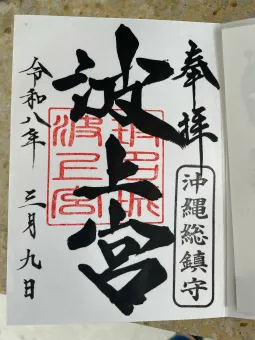 奉拝
沖縄総鎮守
波上宮
令和八年
三月九日